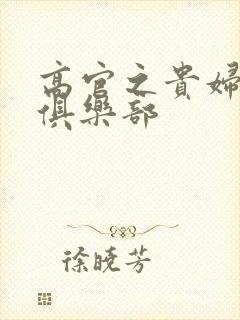 高官之貴婦
俱樂部
徐曉芳